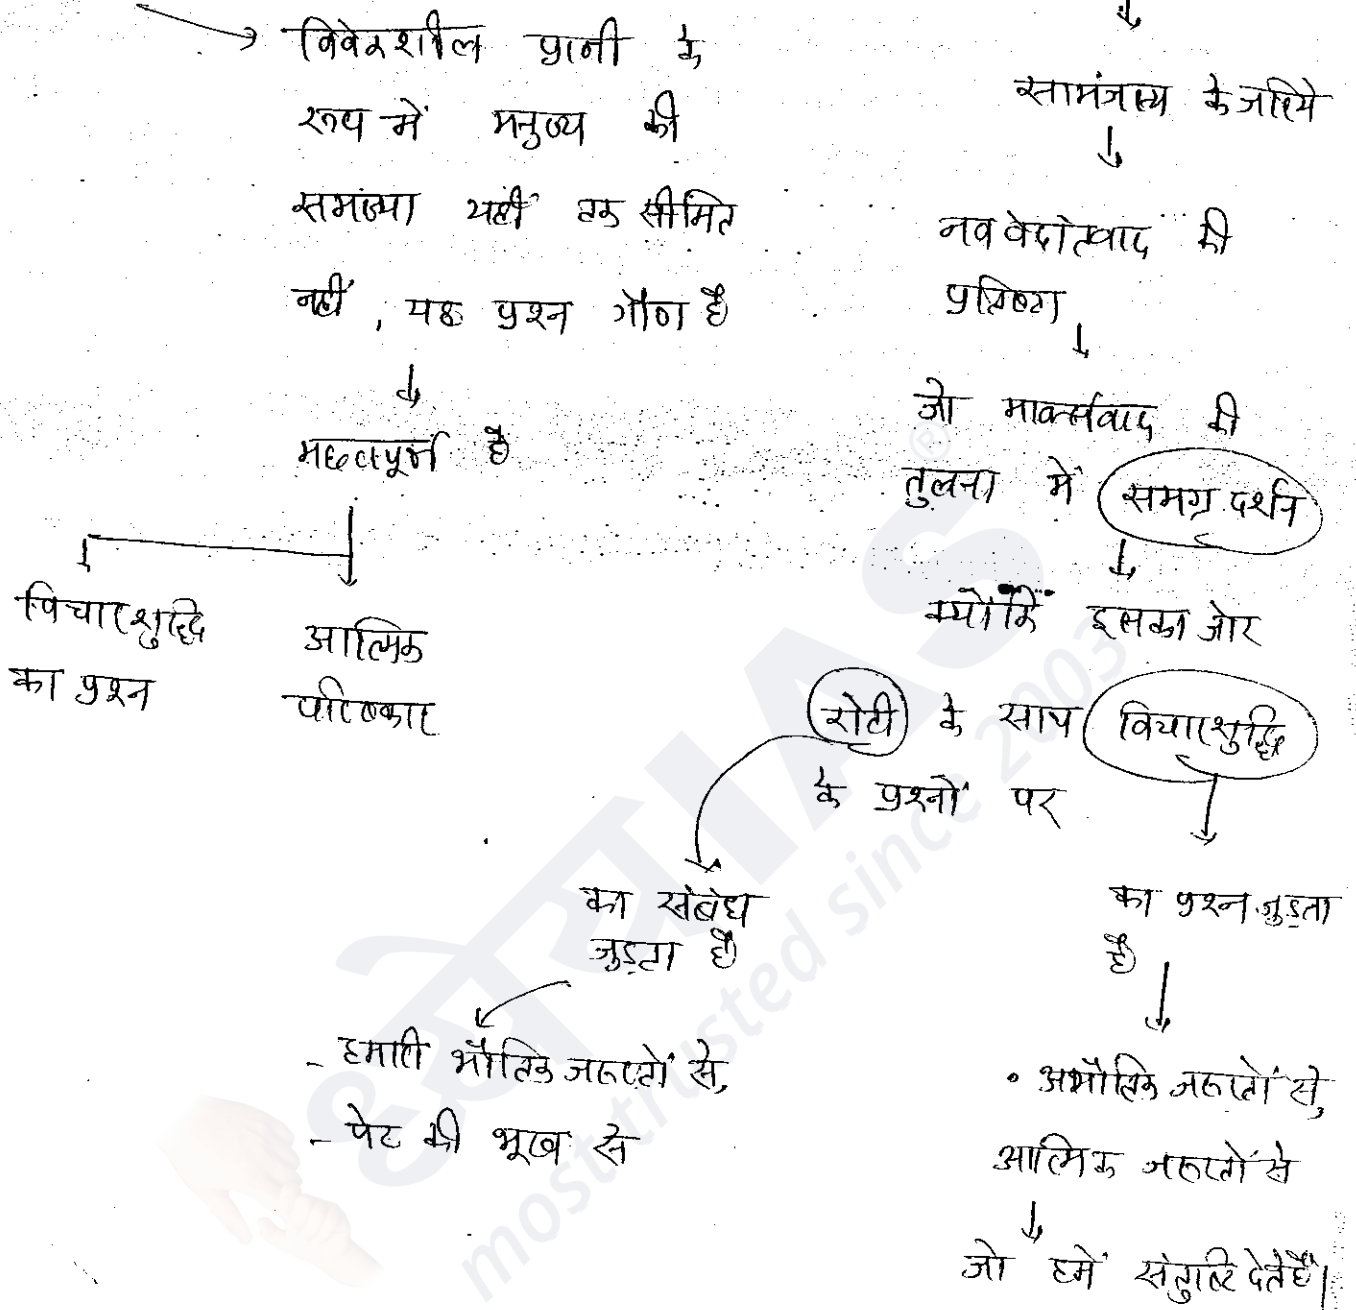 विवेकशील प्राणी के
रूप में मनुष्य की
समस्या यहीं तक सीमित
नहीं, यह प्रश्न गौण है
महत्वपूर्ण है
विचारशुद्धि
का प्रश्न
आत्मिक
परिष्कार
सामंजस्य के जरिये
नव वेदांतवाद की
प्रतिष्ठा
जो मार्क्सवाद की
तुलना में समग्र दर्शन
क्योंकि इसका जोर
रोटी के साथ विचारशुद्धि
के प्रश्नों पर
का संबंध
जुड़ता है
- हमारी भौतिक जरूरतों से,
- पेट की भूख से
का प्रश्न जुड़ता
है
• अभौतिक जरूरतों से,
आत्मिक जरूरतों से
जो हमें संतुष्टि देते हैं।
ध्येय IAS
®
most trusted since 2003